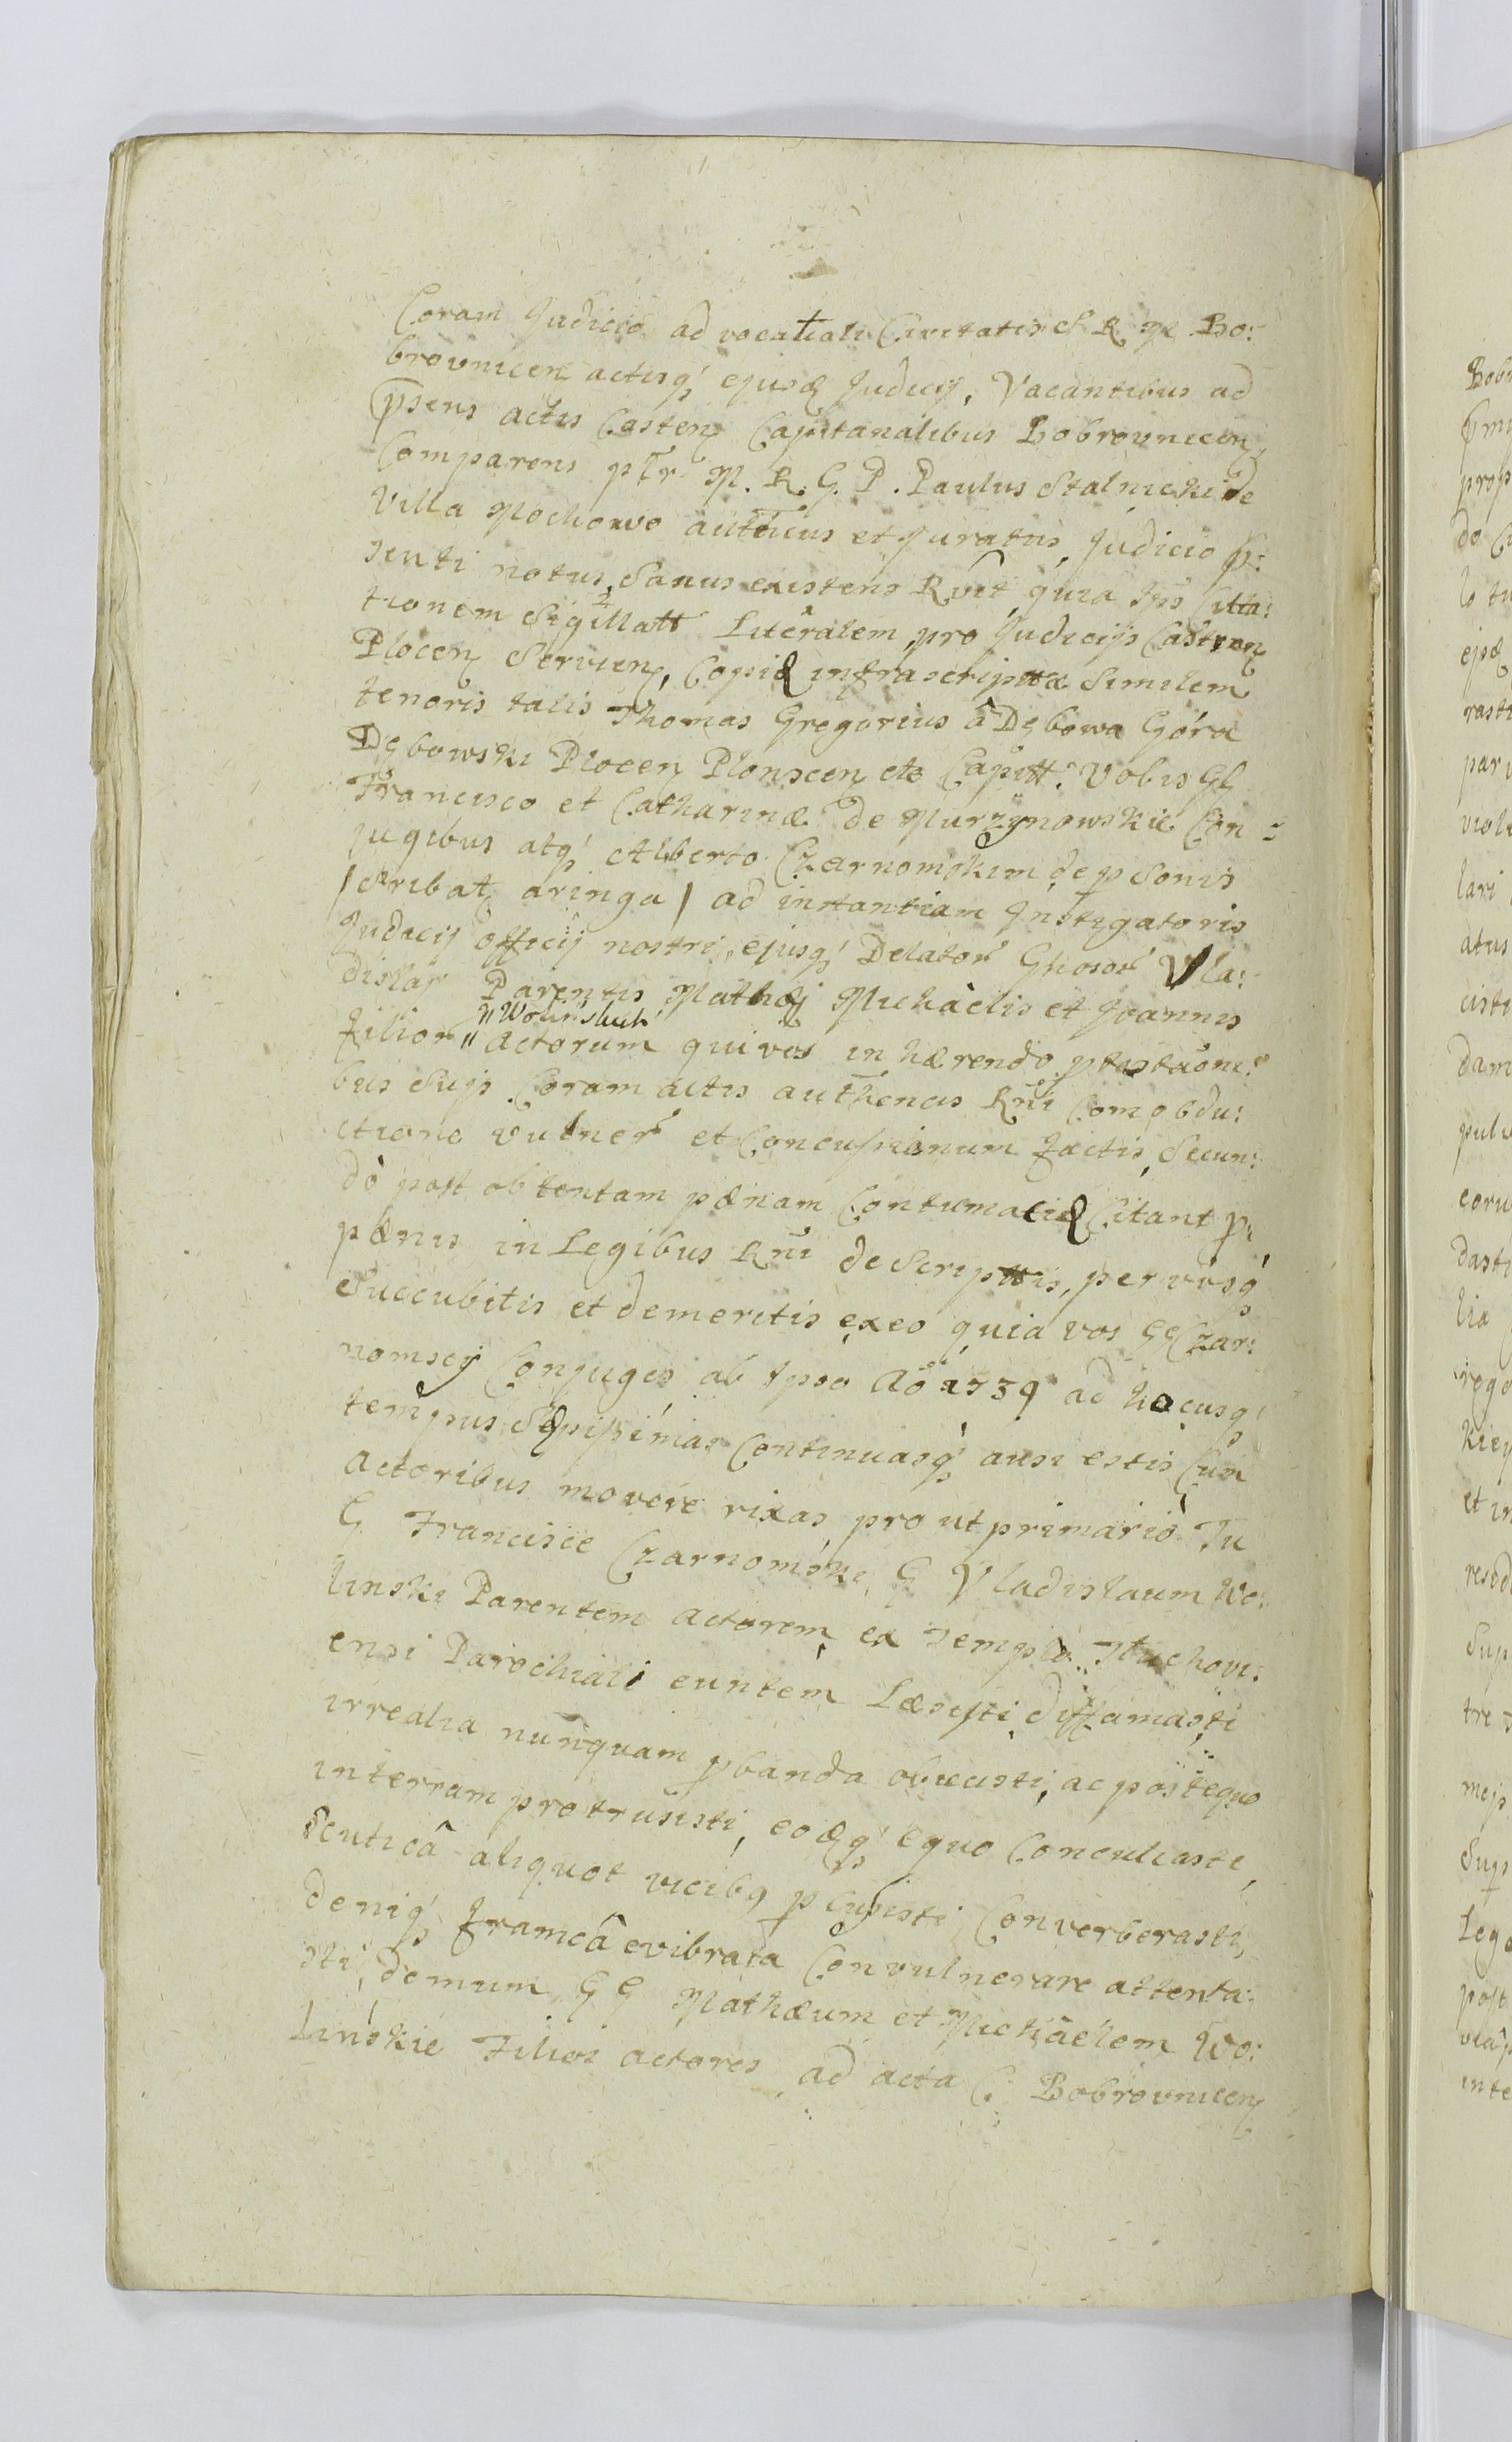 Coram Judicio advocatiali Civitatis S R M Bo:
brovnicen actisq́ ejusđ Judicij, Vacantibus ad
p̄sens actis Castren Capitanalibus Bobrovnicen
Comparens p̄tr M. R. G. P. Paulus Stalnicki de
Villa Mochowo autticus et Juratus Judicio p̄:
senti notus, Sanus existens R̂vit quia Ipŝ Cita:
tionem Sigillatt Literâlem pro Judicijs Castren
Plocen Servien, Copiæ infrascriptæ Similem
tenoris talis Thomas Gregorius â Dębowa Góra
Dębowski Plocen Plonscen etc Capitt. Vobis GG
Francisco et Catharinæ de Murzynowskie Con-
jugibus atq́ Alberto Czarnomskim de p̱sonis
/scribat aringa/ ad instantiam Instigatoris
Judicij officij nostri, ejusq́ Delator̃ Gñosor̃ Vla:
dislai Parentis Mathæj Michaelis et Joannis
"Wolinskich
Filior" Actorum qui vos inhærendo p̱testaõni:
bus Suis Coram actis authencis Rñi Com obdu:
ctione vulner̃ et Concussionum factis, Secun:
dò post obtentam pænam Contumaciæ Citant p̱
pænis in Legibus Rñi deScriptis, per vosq́
Succubitis et demeritis exeo quia vos GG Czar:
nomscy Conjuges ab Ipso Aô 1739 ad hocusq́
tempus Sæpissimas Continuasq́ ausi estis Cum
Actoribus movere rixas pro ut primariò Tu
G. Francisce Czarnomski G Vladislaum Wo:
linski Parentem Actorem ex Templo Tłuchovi:
ensi Parochiali euntem Læsisti diffamasti
irrealia nunquam p̱banda obiecisti, ac post equo
in terram protrusisti, eođq́ equo Conculcasti,
Scuticâ aliquot vicibq p̱cussisti Converberasti,
deniq́ frameâ evibrata Convulnerare attenta:
sti, demum GG Mathæum et Michaelem Wo:
linskie Filios actores ad acta C. Bobrovnicen